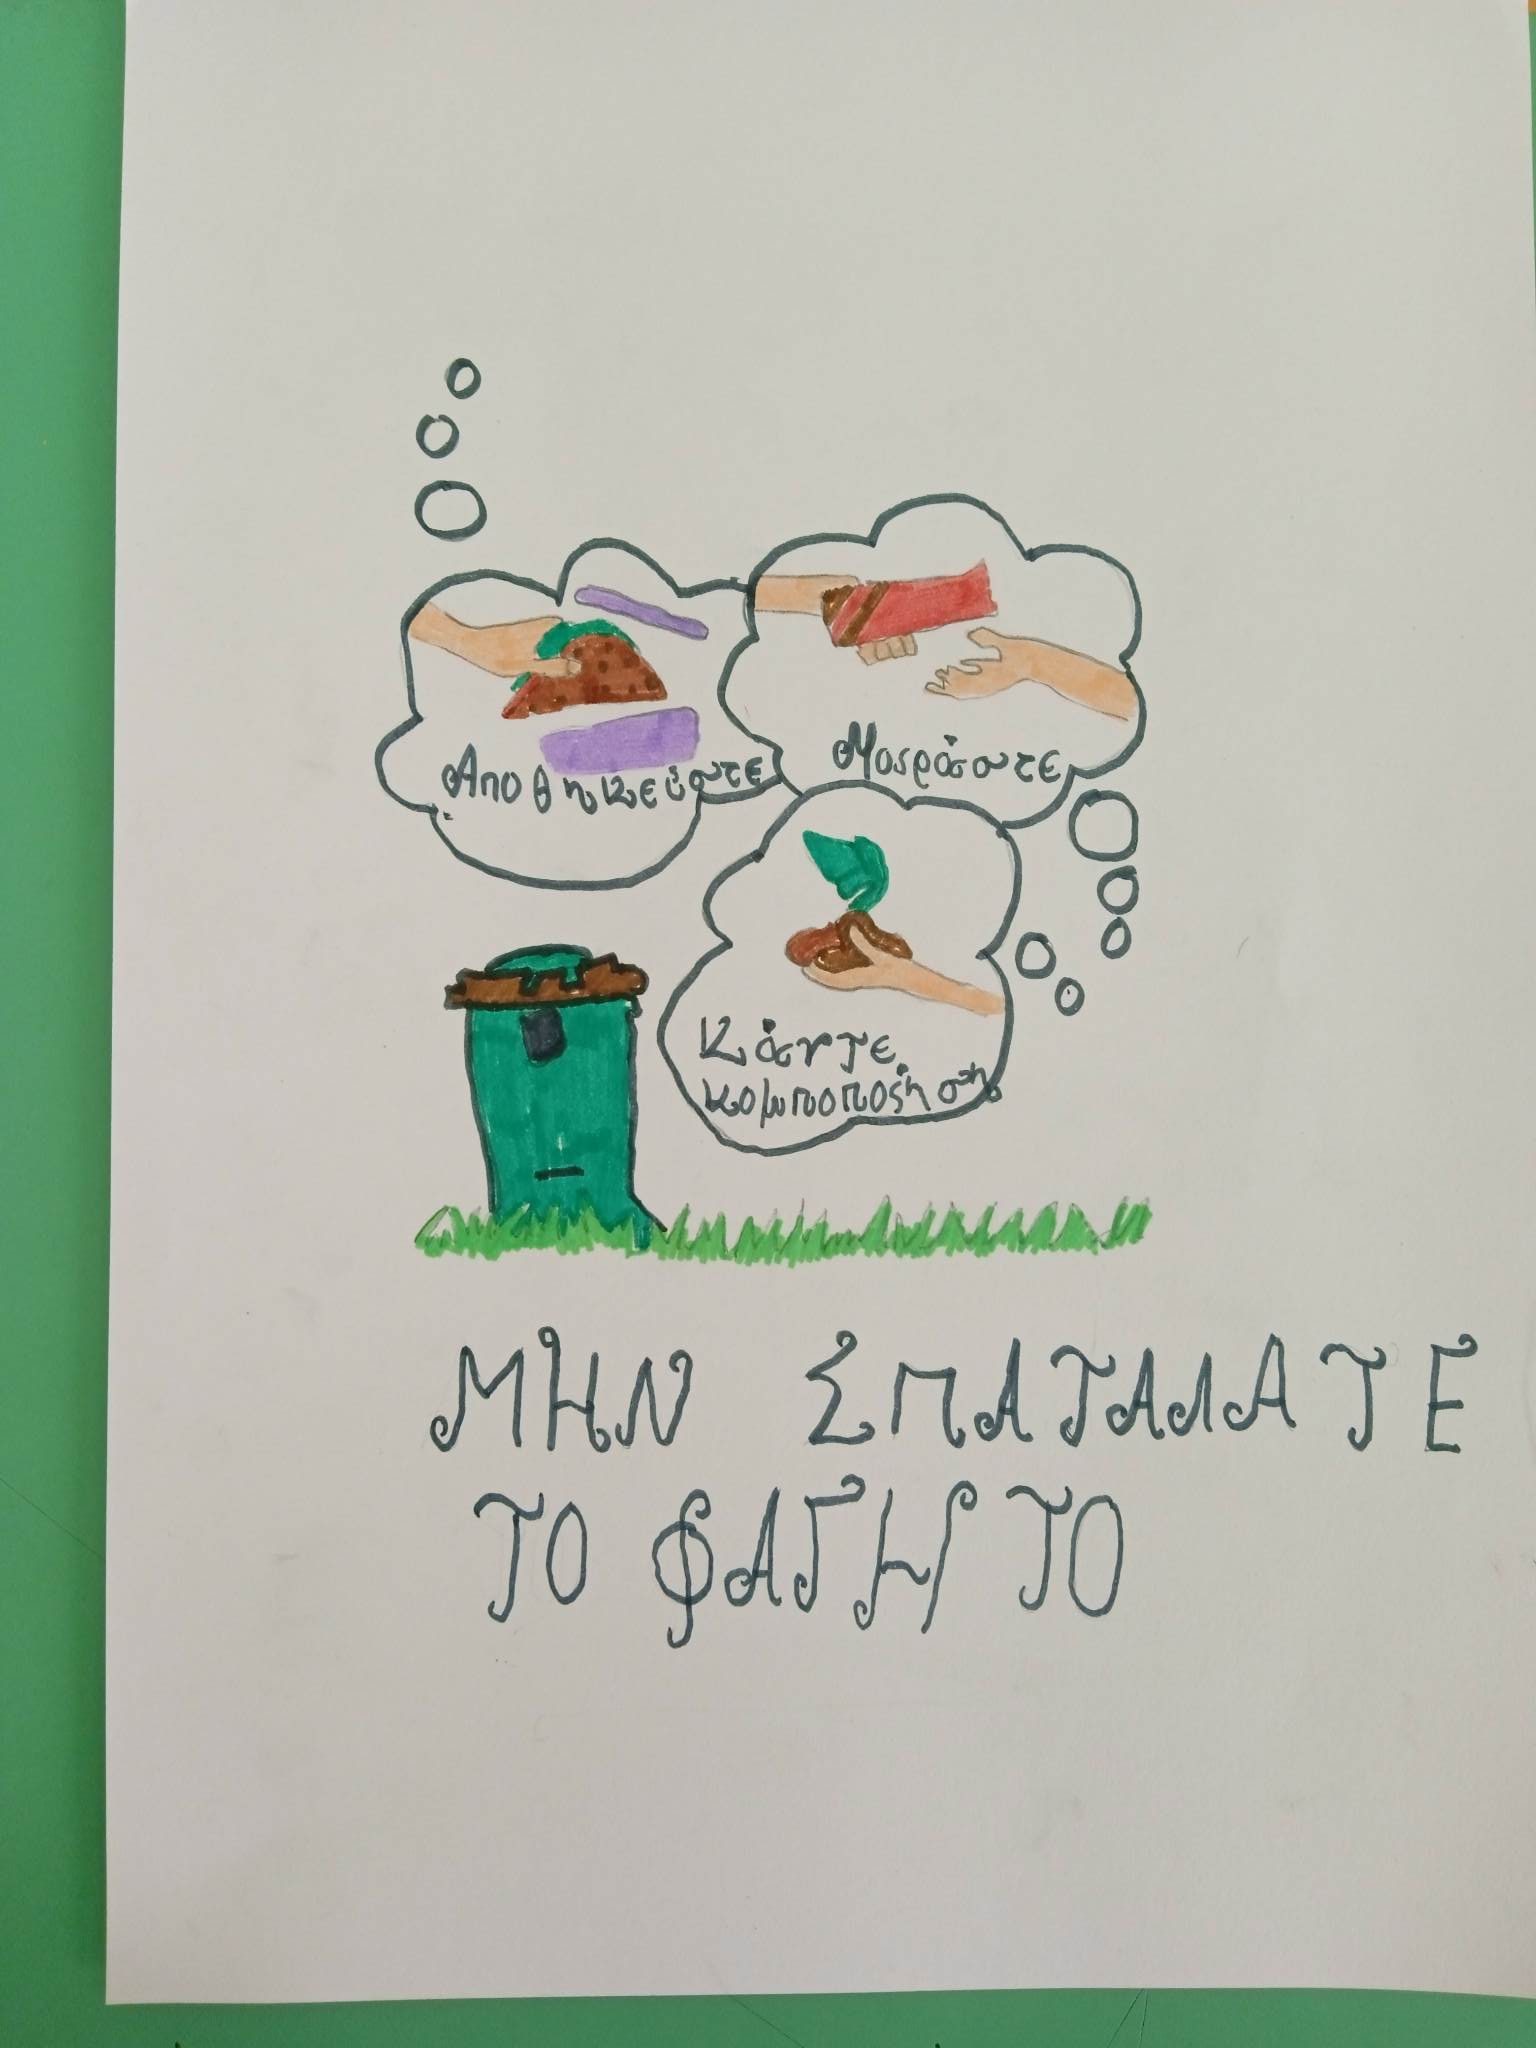 Αποθηκεύστε
Μοιράστε
Κάντε
κομποπσξήση
ΜΗΝ ΣΠΑΤΑΛΑΤΕ
ΤΟ ΦΑΓΗΤΟ